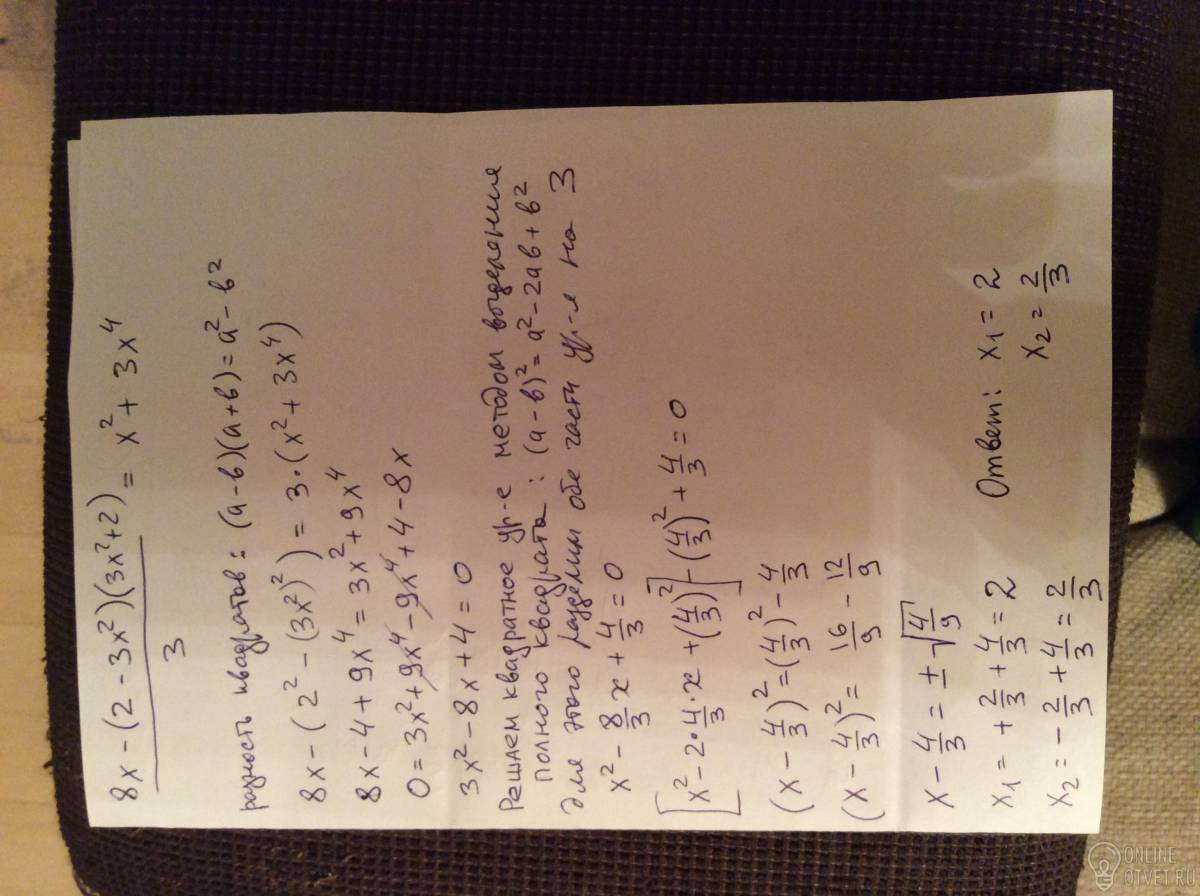 8x - (2 - 3x²)(3x² + 2) / 3 = x² + 3x⁴
разность квадратов: (a - в)(a + в) = a² - в²
8x - (2² - (3x²)²) = 3·(x² + 3x⁴)
8x - 4 + 9x⁴ = 3x² + 9x⁴
0 = 3x² + 9x⁴ - 9x⁴ + 4 - 8x
3x² - 8x + 4 = 0
Решаем квадратное ур-е методом выделения
полного квадрата: (a - в)² = a² - 2aв + в²
Для этого разделим обе части ур-я на 3
x² - 8/3 x + 4/3 = 0
[x² - 2·4/3·x + (4/3)²] - (4/3)² + 4/3 = 0
(x - 4/3)² = (4/3)² - 4/3
(x - 4/3)² = 16/9 - 12/9
x - 4/3 = ± √4/9
x₁ = + 2/3 + 4/3 = 2
x₂ = - 2/3 + 4/3 = 2/3
Ответ: x₁ = 2
x₂ = 2/3
ONLINE
OTVET.RU